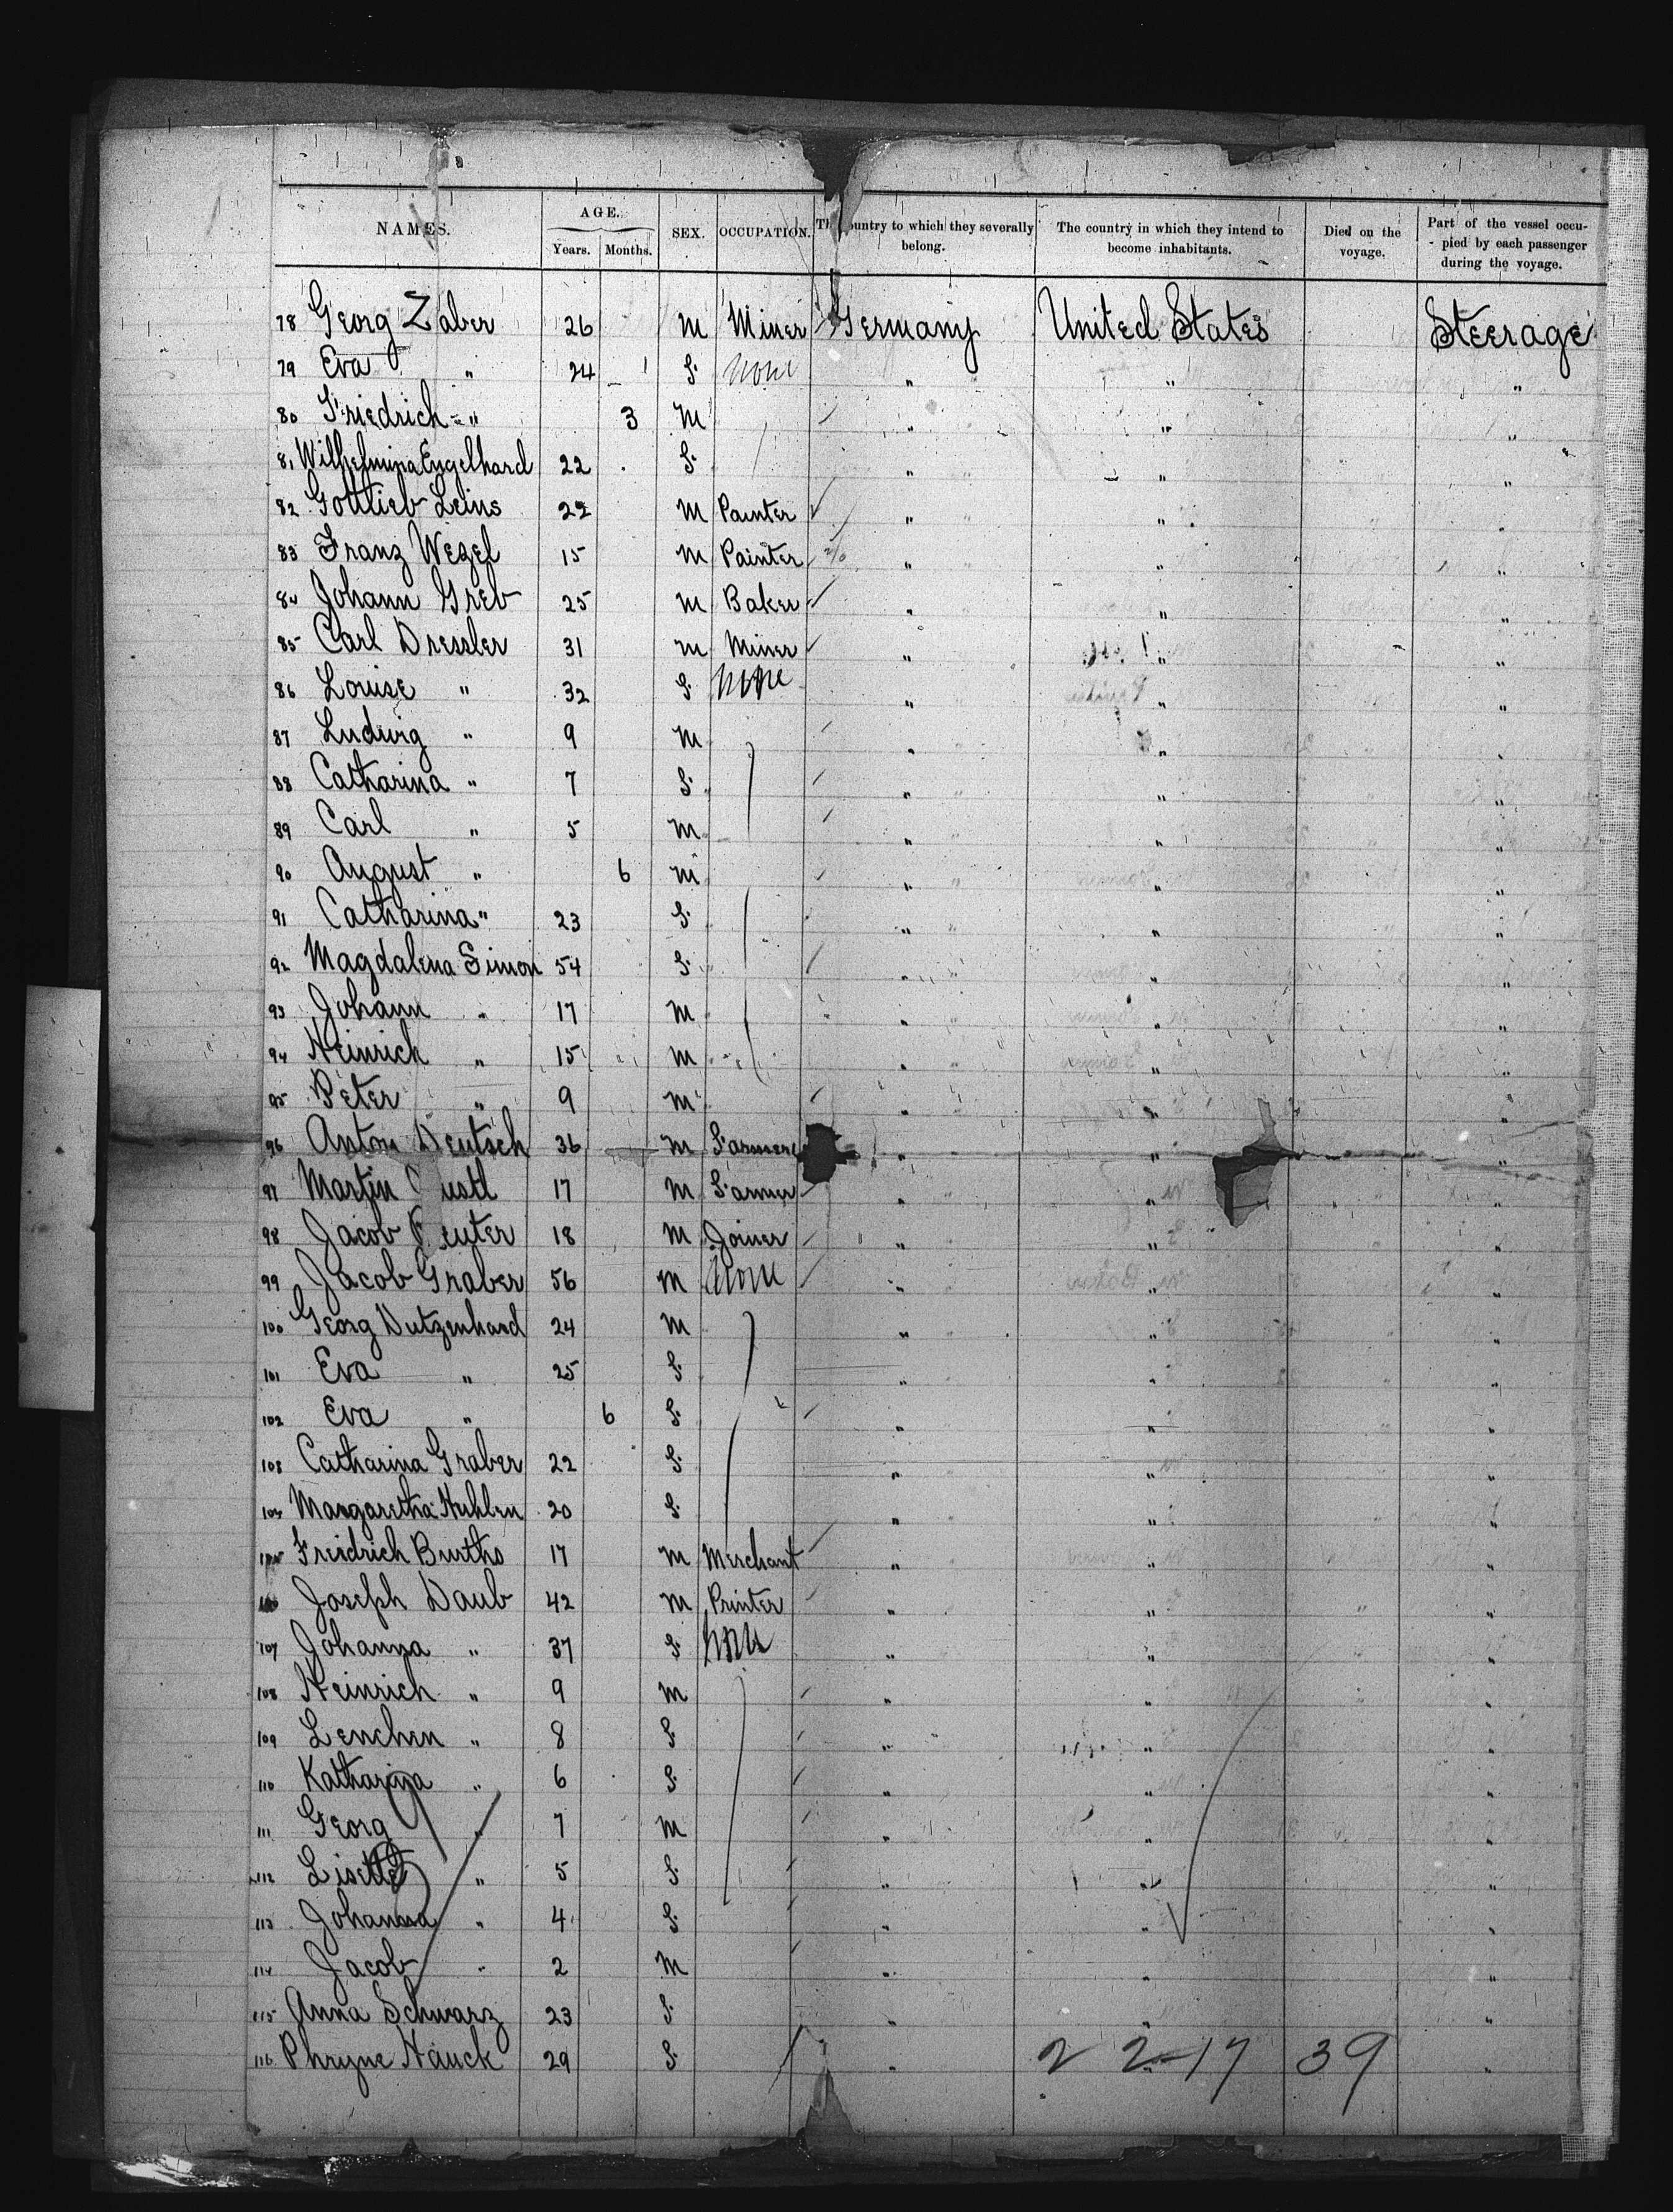 NAMES. AGE. Years. Months. SEX. OCCUPATION. The country to which they severally belong. The country in which they intend to become inhabitants. Died on the voyage. Part of the vessel occupied by each passenger during the voyage.
78 Georg Zaber 26 M Miner Germany United States Steerage
79 Eva " 24 S. None " " "
80 Friedrich " 3 M " " "
81 Wilhelmina Engelhard 22 S. " " "
82 Gottlieb Leins 22 M Painter " " "
83 Franz Wezel 15 M Painter " " "
84 Johann Greb 25 M Baker " " "
85 Carl Dressler 31 M Miner " " "
86 Louise " 32 S. None " " "
87 Ludwig " 9 M " " "
88 Catharina " 7 S. " " "
89 Carl " 5 M " " "
90 August " 6 M " " "
91 Catharina " 23 S. " " "
92 Magdalena Simon 54 S. " " "
93 Johann " 17 M " " "
94 Heinrich " 15 M " " "
95 Peter " 9 M " " "
96 Anton Deutsch 36 M Farmer " " "
97 Martin 17 M Farmer " " "
98 Jacob 18 M Joiner " " "
99 Jacob Graber 56 M None " " "
100 Georg Dutzenhard 24 M " " "
101 Eva " 25 S. " " "
102 Eva " 6 S. " " "
103 Catharina Graber 22 S. " " "
104 Margaretha 20 S. " " "
105 Freidrich 17 M Merchant " " "
Joseph Daub 42 M Printer " " "
107 Johanna " 37 S. None " " "
108 Heinrich " 9 M " " "
109 Lenchen " 8 S. " " "
110 Katharina " 6 S. " " "
111 Georg " 7 M " " "
112 Lisette " 5 S. " " "
113 Johanna " 4 S. " " "
114 Jacob " 2 M " " "
115 Anna Schwarz 23 S. " " "
116 Phryne Hauck 29 S. " 2 2-17 39 "